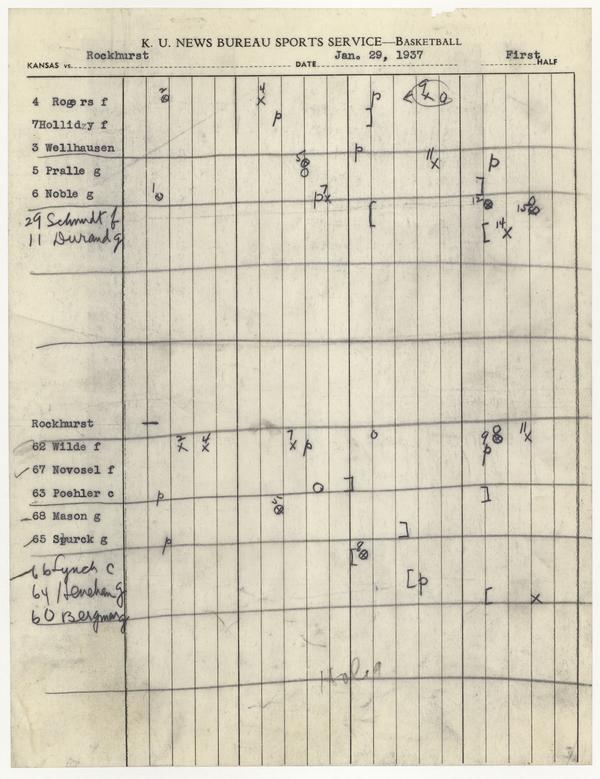 K. U. NEWS BUREAU SPORTS SERVICE—BASKETBALL
KANSAS vs. Rockhurst DATE Jan. 29, 1937 First HALF
4 Rogers f 2 4 p 9 x o
7Hollidzy f p ]
3 Wellhausen p 11 x p
5 Pralle g 5 ]
6 Noble g 1 p 7 x 12 15
29 Schmidt f [
11 Durand g [ 14 x
Rockhurst —
62 Wilde f 2 x 4 x 7 x p o 9 8 p 11 x
67 Novosel f
63 Poehler c p o ] ]
68 Mason g 5 ]
65 Spurck g p 8
66 Lynch c [
64 Henehan g [ p
60 Bergman g [ x